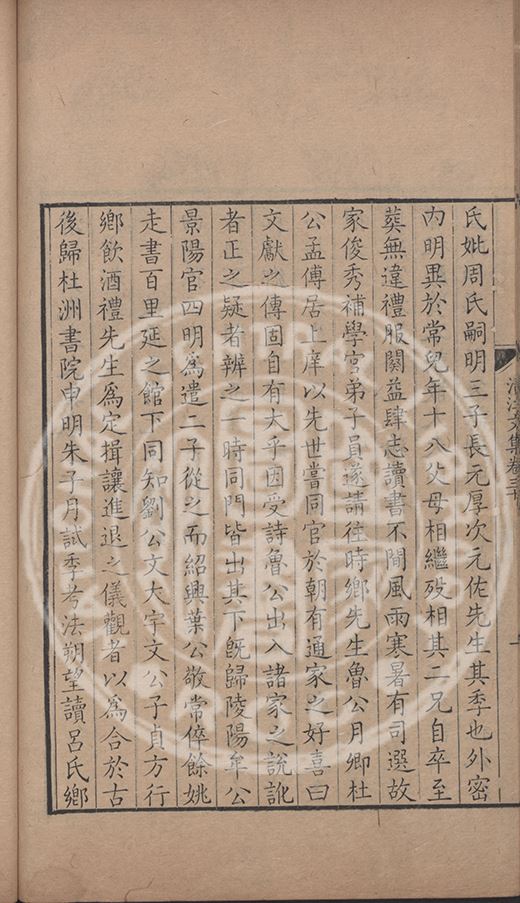 氏妣周氏嗣明三子長元厚次元佐先生其季也外密
内明異於常兒年十八父母相繼歿相其二兄自卒至
葬無違禮服闋益肆志讀書不間風雨寒暑有司選故
家俊秀補學官弟子員遂請往時鄉先生魯公月卿杜
公孟傅居上庠以先世嘗同官於朝有通家之好喜曰
文獻之傳固自有大乎因受詩魯公出入諸家之說訛
者正之疑者辨之一時同門皆出其下旣歸陵陽牟公
景陽官四明爲遣二子從之而紹興葉公敬常倅餘姚
走書百里延之館下同知劉公文大宇文公子貞方行
鄉飲酒禮先生爲定揖讓進退之儀觀者以爲合於古
後歸杜洲書院申明朱子月試季考法朔望讀呂氏鄉
清江文集卷三十